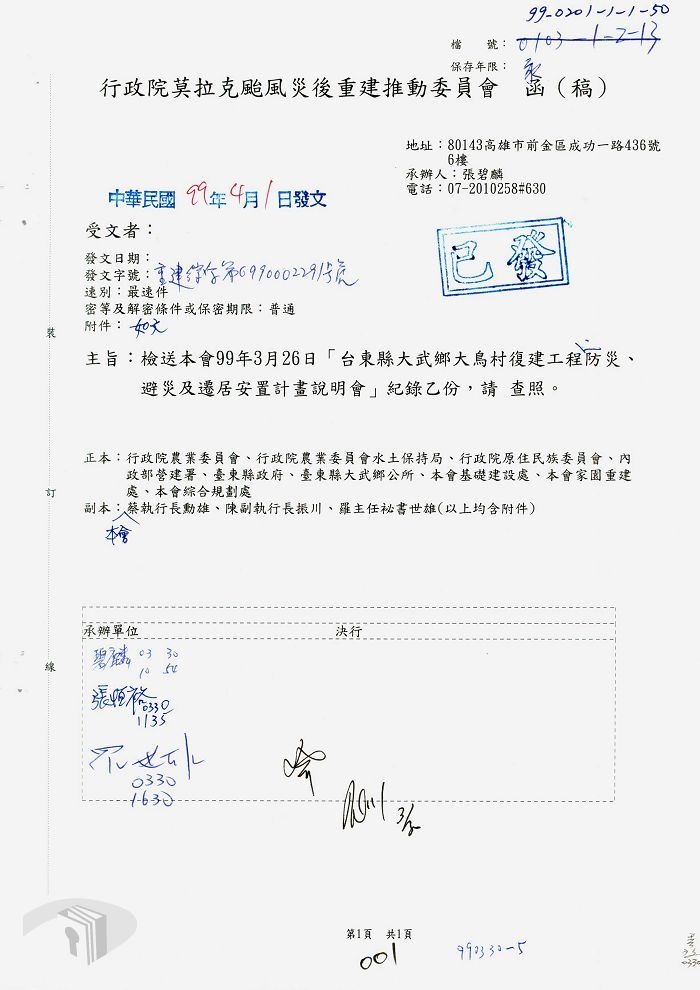 99-0201-1-1-50
檔　　號：0103-1-2-13
保存年限：永
行政院莫拉克颱風災後重建推動委員會　函（稿）
地址：80143高雄市前金區成功一路436號
6樓
承辦人：張碧麟
電話：07-2010258#630
中華民國 99年4月1日發文
受文者：
已發
發文日期：
發文字號：重建綜字第0990002291號
速別：最速件
密等及解密條件或保密期限：普通
附件：如文
裝
主旨：檢送本會99年3月26日「台東縣大武鄉大鳥村復建工程防災、
避災及遷居安置計畫說明會」紀錄乙份，請 查照。
正本：行政院農業委員會、行政院農業委員會水土保持局、行政院原住民族委員會、內
政部營建署、臺東縣政府、臺東縣大武鄉公所、本會基礎建設處、本會家園重建
處、本會綜合規劃處
訂
副本：蔡執行長勳雄、陳副執行長振川、羅主任祕書世雄(以上均含附件)
本會
承辦單位　決行
碧麟 03 30
10 54
線
張恒裕 0330
1135
0330
1630
第1頁　共1頁
001
990330-5
0330